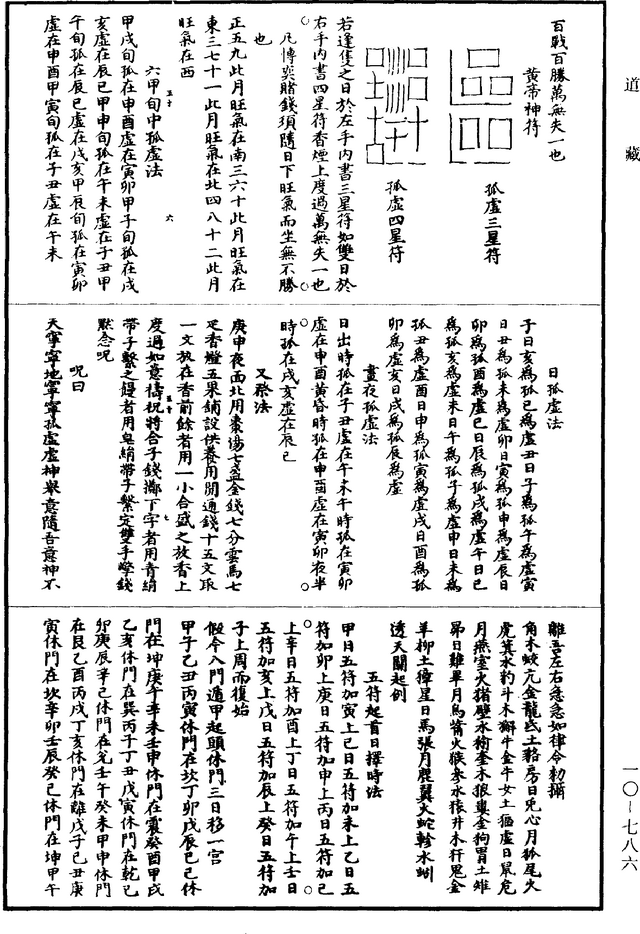 道藏
百戰百勝萬無失一也
黃帝神符
孤虛三星符
孤虛四星符
若逢隻之日於左手內書三星符如雙日於
右手內書四星符香煙上度過萬無失一也
凡博奕賭錢須隨日下旺氣而坐無不勝
也
正五九此月旺氣在南三六十此月旺氣在
東三七十一此月旺氣在北四八十二此月
旺氣在西
六甲旬中孤虛法
甲戌旬孤在申酉虛在寅卯甲子旬孤在戌
亥虛在辰巳甲申旬孤在午未虛在子丑甲
午旬孤在辰巳虛在戌亥甲辰旬孤在寅卯
虛在申酉甲寅旬孤在子丑虛在午未
五十
六
日孤虛法
子日亥為孤巳為虛丑日子為孤午為虛寅
日丑為孤未為虛卯日寅為孤申為虛辰日
卯為孤酉為虛巳日辰為孤戌為虛午日巳
為孤亥為虛未日午為孤子為虛申日未為
孤丑為虛酉日申為孤寅為虛戌日酉為孤
卯為虛亥日戌為孤辰為虛
晝夜孤虛法
日出時孤在子丑虛在午未午時孤在寅卯
虛在申酉黃昏時孤在申酉虛在寅卯夜半
時孤在戌亥虛在辰巳
又祭法
庚申夜面北用棗湯七盞金錢七分雲馬七
疋香燈五果鋪設供養用開通錢十五文取
一文放在香前餘者用一小合盛之放香上
度過如意禱祝將合子錢擲下字者用青絹
帶子繫之鏝者用皂絹帶子繫定雙手擎錢
默念呪
呪曰
天寧寧地寧寧孤虛虛神舉意隨吾意神不
五十
七
離吾左右急急如律令勑攝
角木蛟亢金龍氐土貉房日兔心月狐尾火
虎箕水豹斗木獬牛金牛女土蝠虛日鼠危
月燕室火猪壁水㺄奎木狼婁金狗胃土雉
昴日雞畢月烏觜火猴參水猿井木犴鬼金
羊柳土獐星日馬張月鹿翼火蛇軫水蚓
透天關起例
五符起首日擇時法
甲日五符加寅上己日五符加未上乙日五
符加卯上庚日五符加申上丙日五符加巳
上辛日五符加酉上丁日五符加午上壬日
五符加亥上戊日五符加辰上癸日五符加
子上周而復始
假令八門遁甲起頭休門三日移一宮
甲子乙丑丙寅休門在坎丁卯戊辰己巳休
門在坤庚午辛未壬申休門在震癸酉甲戌
乙亥休門在巽丙子丁丑戊寅休門在乾己
卯庚辰辛巳休門在兌壬午癸未甲申休門
在艮乙酉丙戌丁亥休門在離戊子己丑庚
寅休門在坎辛卯壬辰癸巳休門在坤甲午
一〇—七八六